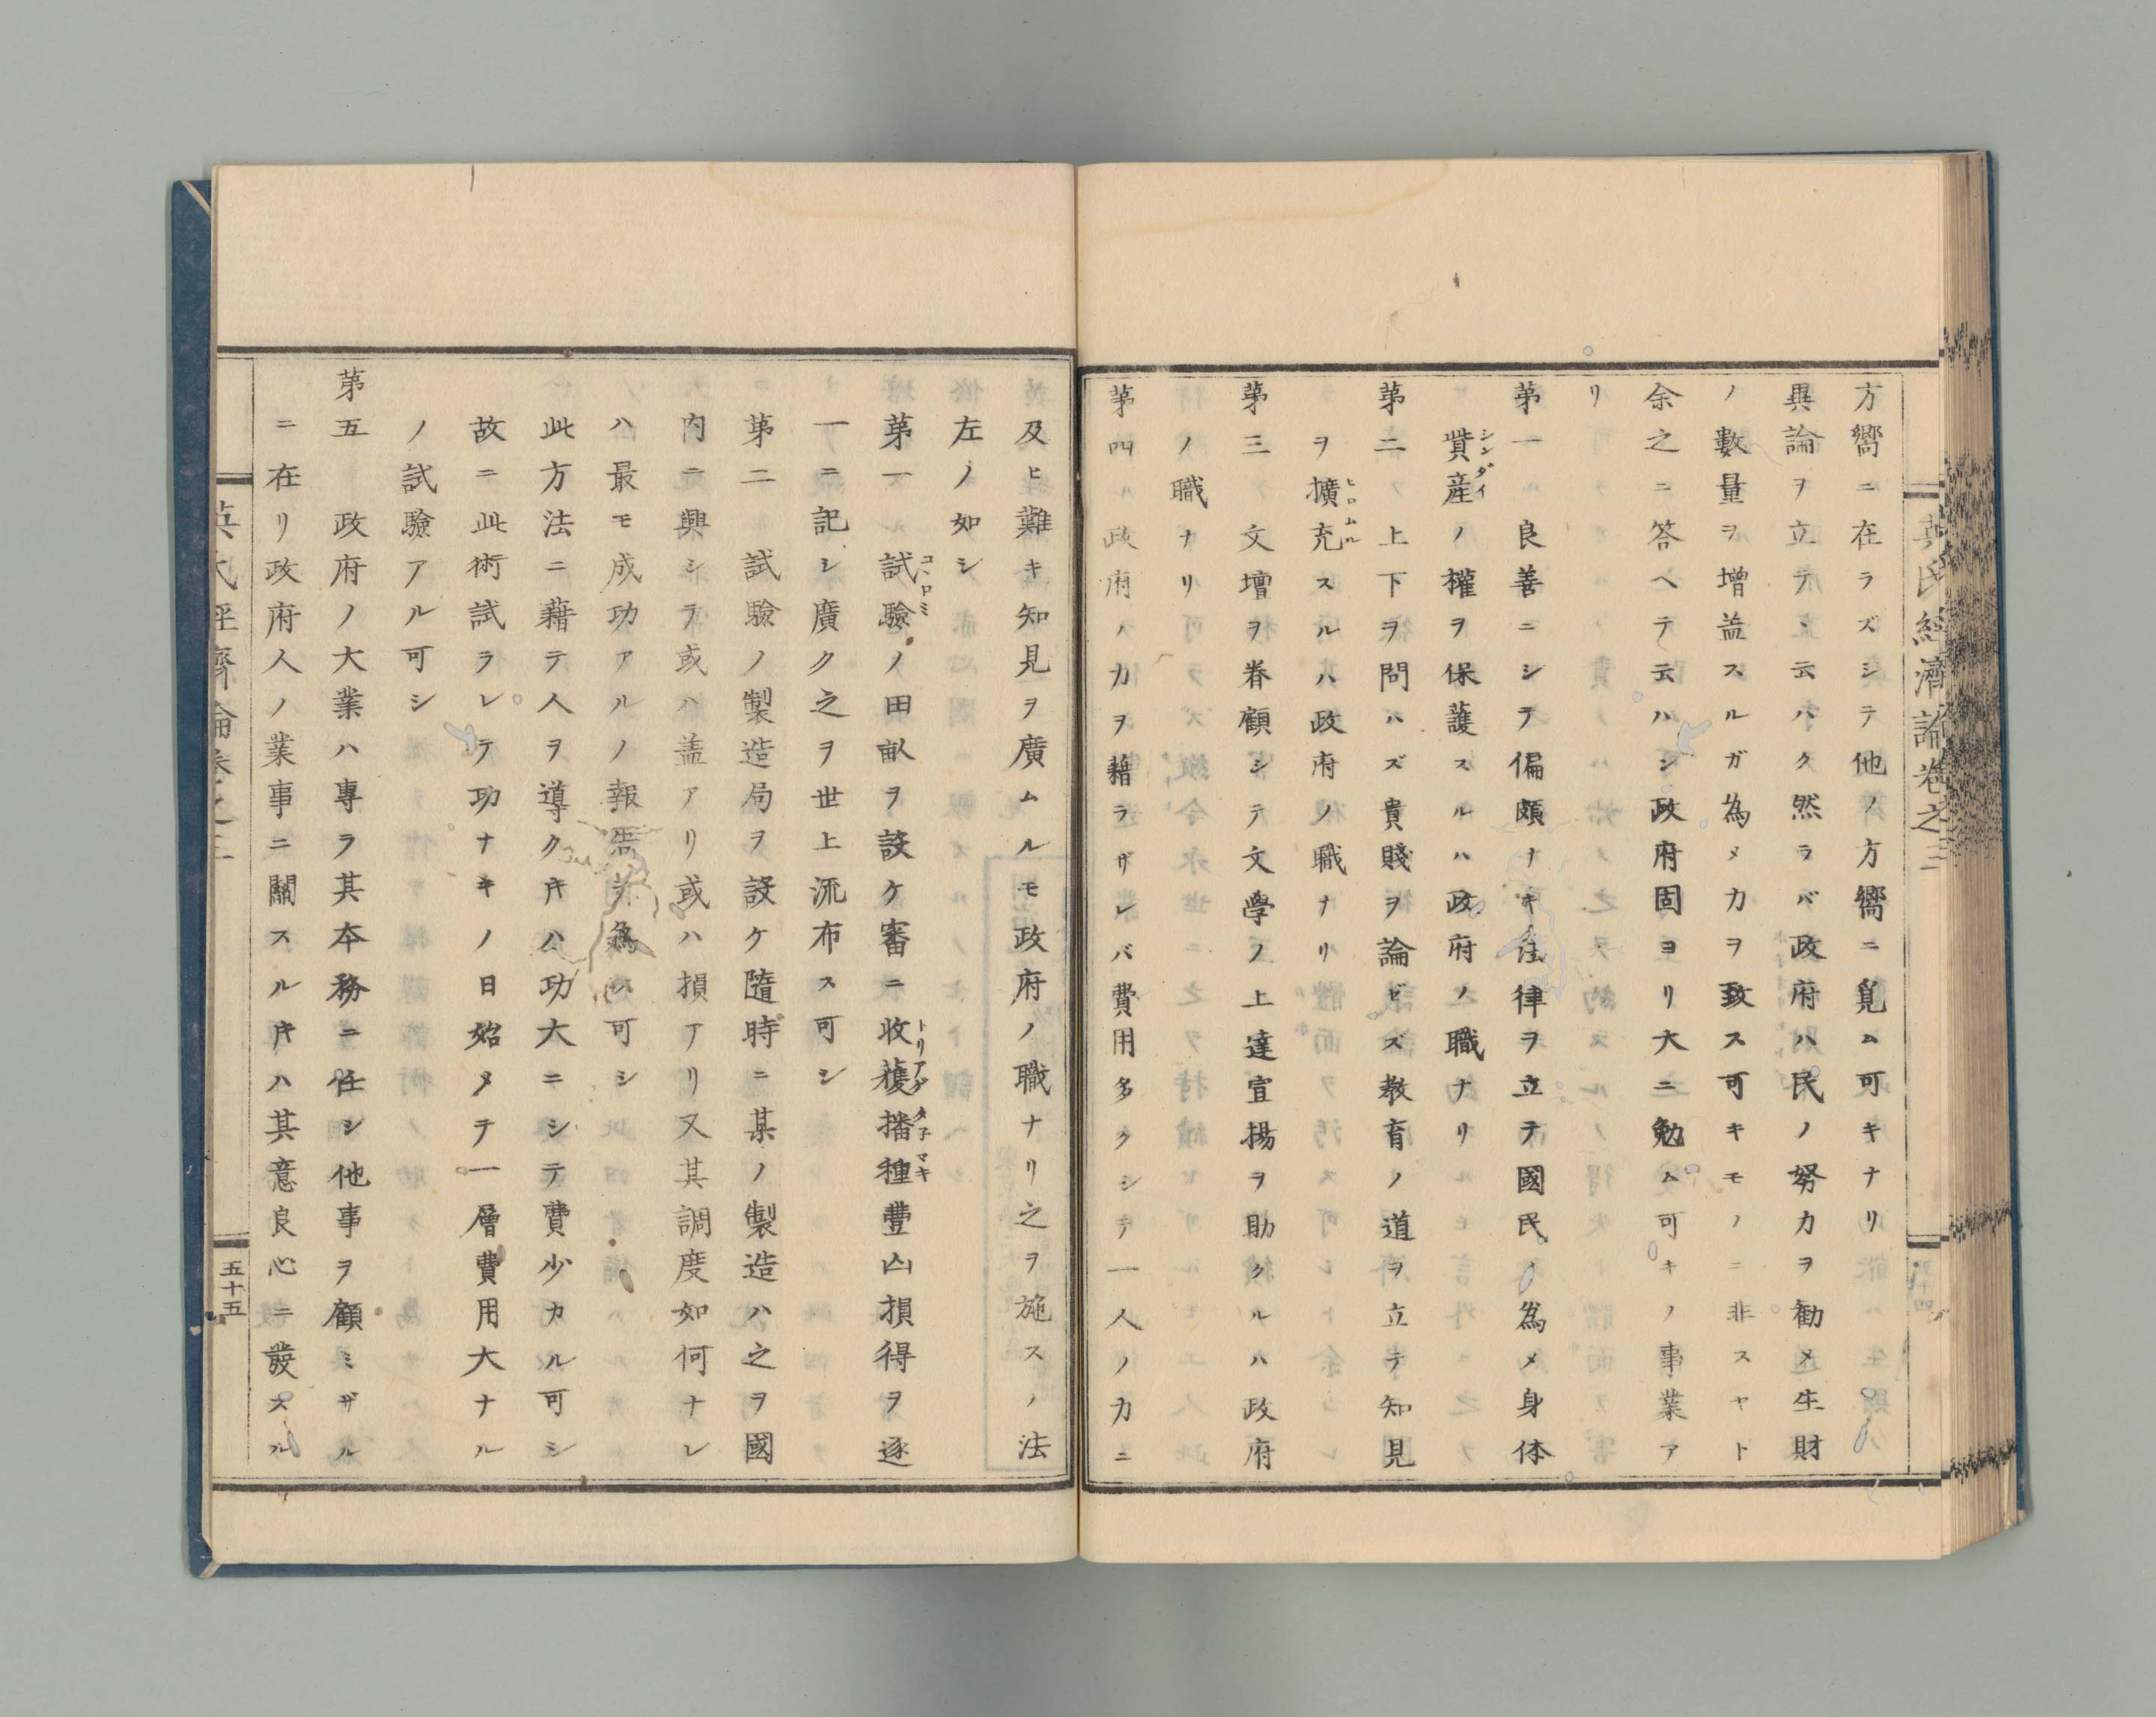 英氏經濟論卷之三
方嚮ニ在ラズシテ他ノ方嚮ニ覓ム可キナリ
異論ヲ立テ丶云ハク然ラバ政府ハ民ノ努力ヲ勸メ生財
ノ數量ヲ增益スルガ為メ力ヲ致ス可キモノニ非スヤト
余之ニ答ヘテ云ハン政府固ヨリ大ニ勉ム可キノ事業ア
リ
苐一 良善ニシテ偏頗ナキ法律ヲ立テ國民ノ為メ身体
貲産ノ權ヲ保護スルハ政府ノ職ナリ
シンダイ
苐二 上下ヲ問ハズ貴賤ヲ論ゼズ教育ノ道ヲ立テ知見
ヲ擴充スルハ政府ノ職ナリ
ヒロムル
苐三 文壇ヲ眷顧シテ文學ノ上達宣揚ヲ助クルハ政府
ノ職ナリ
苐四 政府ノ力ヲ藉ラザレバ費用多クシテ一人ノ力ニ
及ヒ難キ知見ヲ廣ムルモ政府ノ職ナリ之ヲ施スノ法
左ノ如シ
苐一 試驗ノ田畝ヲ設ケ審ニ收穫播種豐凶損得ヲ逐
コヽロミ トリアゲ タ子マキ
一ニ記シ廣ク之ヲ世上流布ス可シ
苐二 試驗ノ製造局ヲ設ケ隨時ニ某ノ製造ハ之ヲ國
内ニ興シテ或ハ益アリ或ハ損アリ又其調度如何ナレ
ハ最モ成功アルノ報告ヲ為ス可シ
此方法ニ藉テ人ヲ導クキハ功大ニシテ費少カル可シ
故ニ此術試ラレテ功ナキノ日始メテ一層費用大ナル
ノ試驗アル可シ
苐五 政府ノ大業ハ專ラ其本務ニ任シ他事ヲ顧ミザル
ニ在リ政府人ノ業事ニ關スルキハ其意良心ニ發スル
英氏經濟論卷之三
五十五